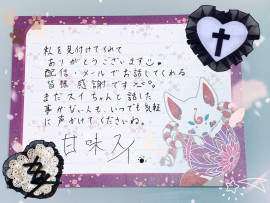 私を見付けてくれて
ありがとうございます
配信・メールでお話してくれる
皆様感謝です
まだスイちゃんと話した
事がない人も、いつでも気軽
に声かけてくださいね。
甘味スイ